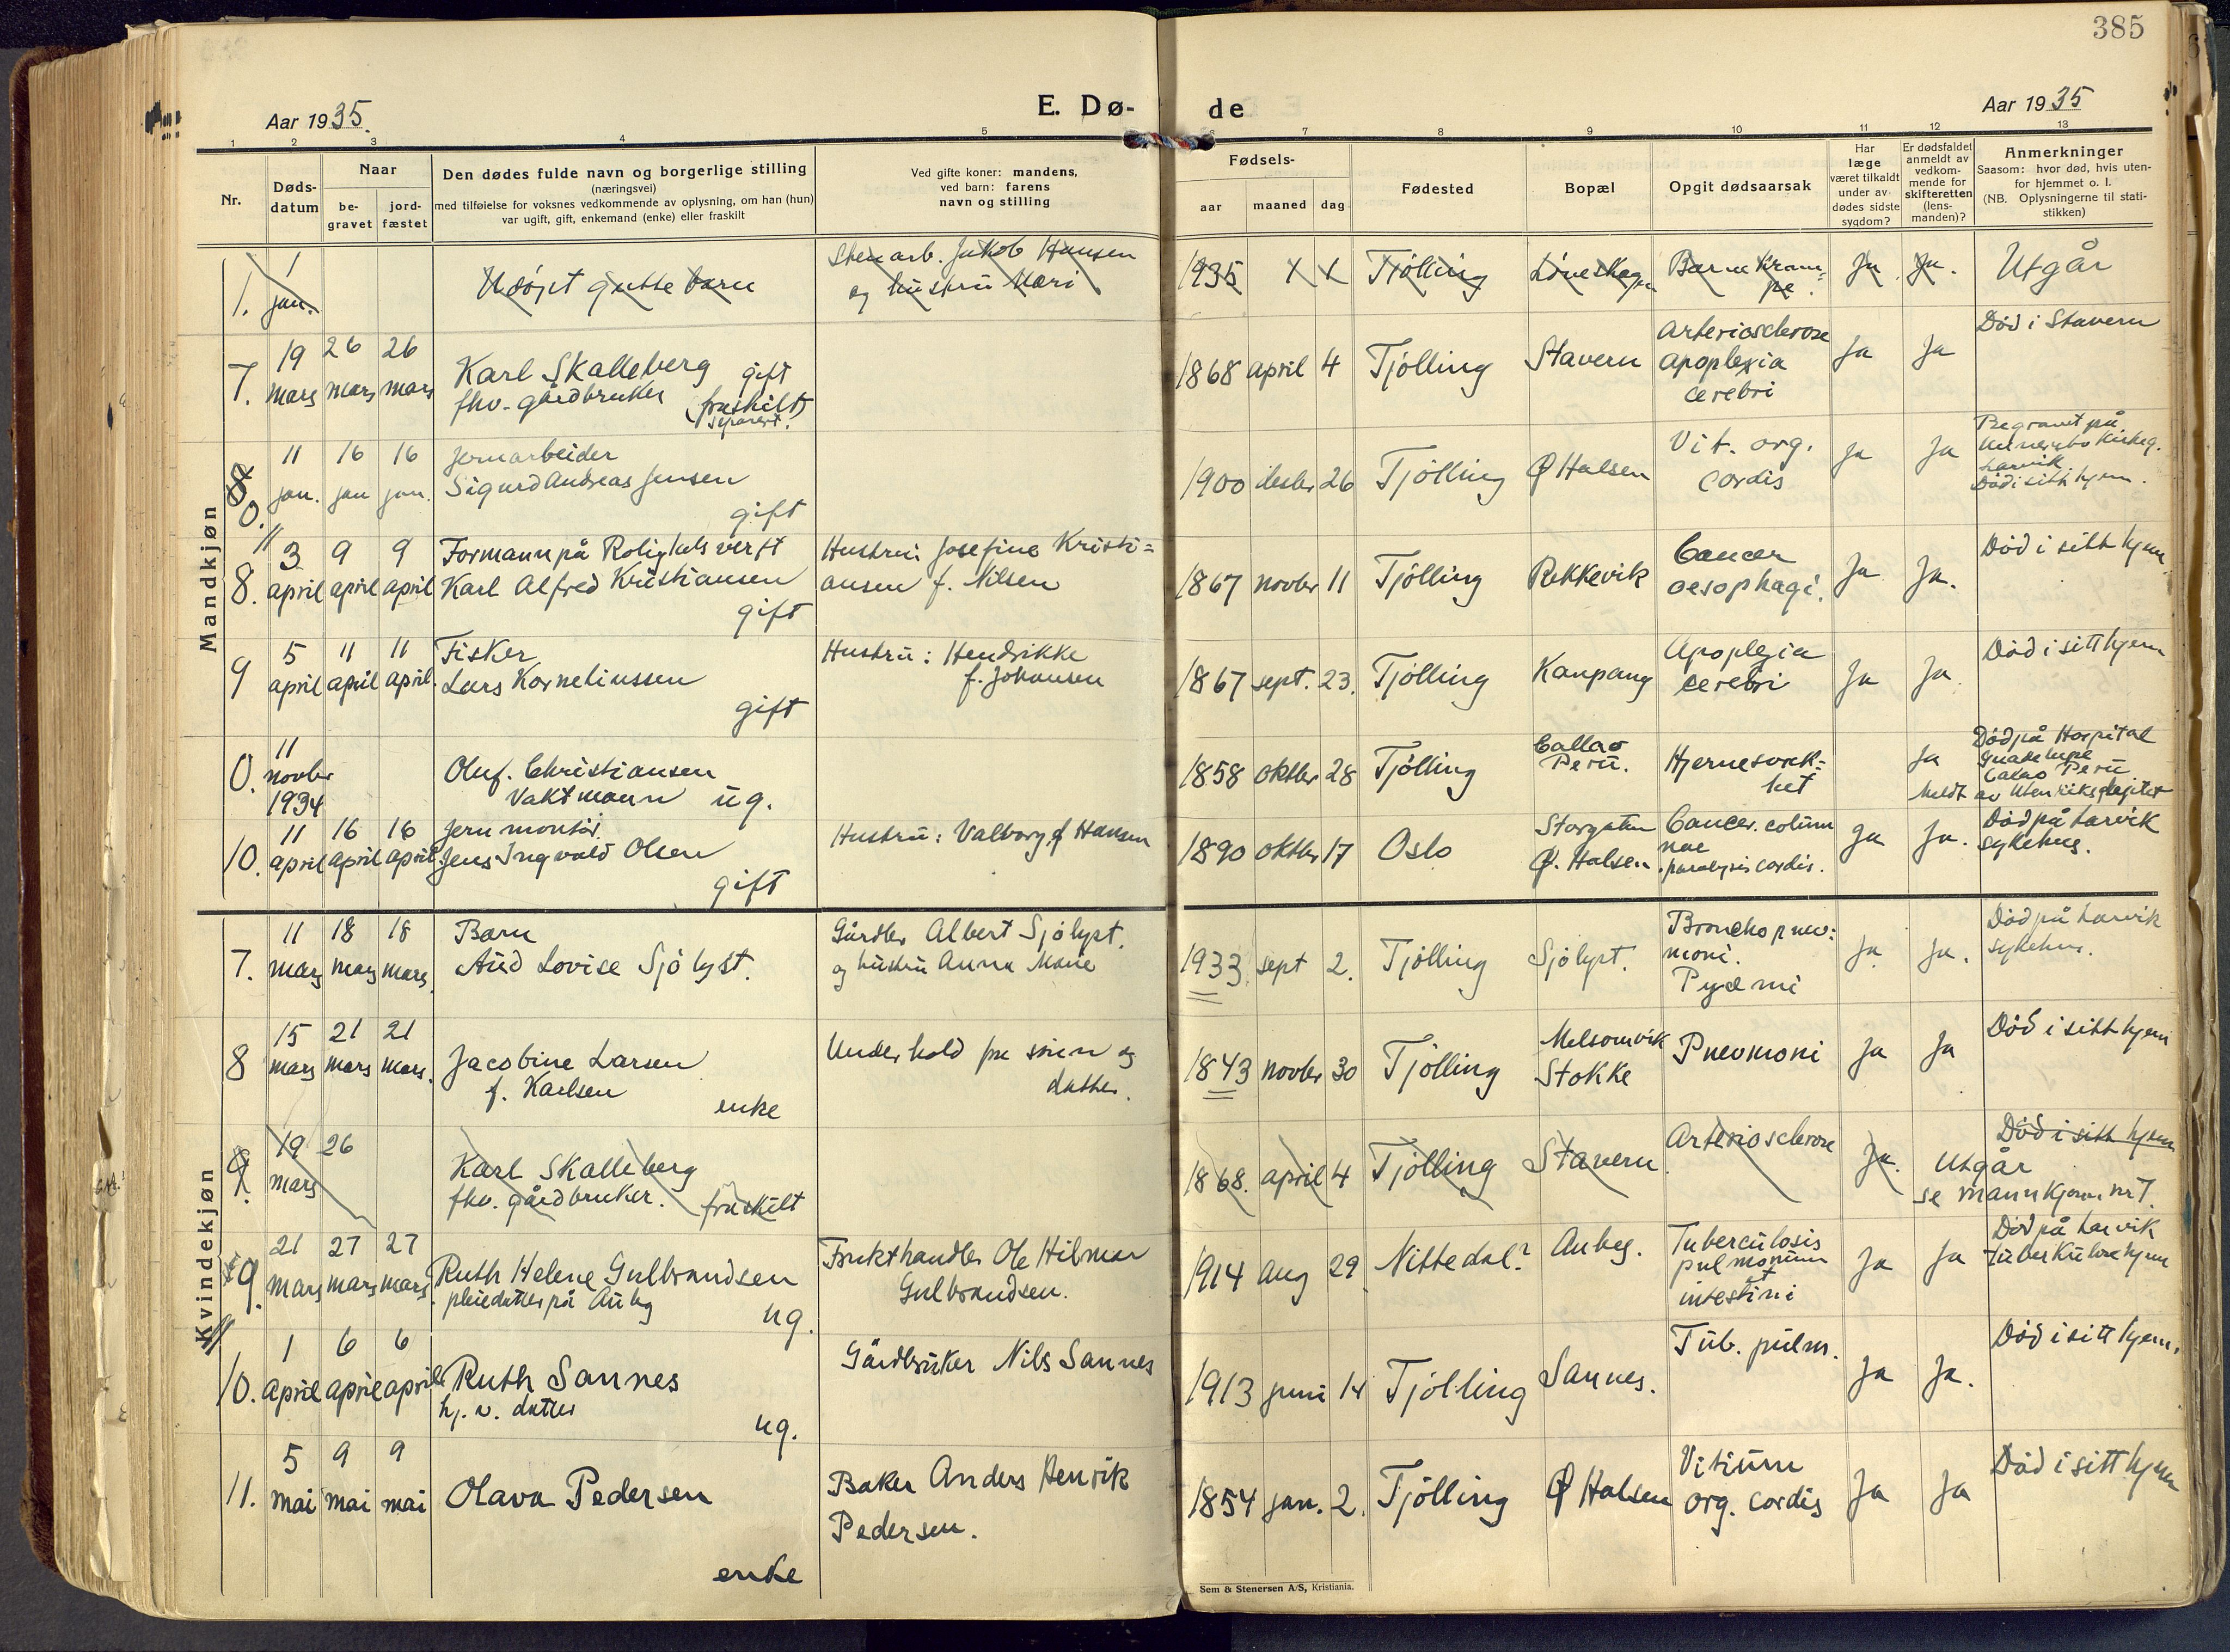 385
Aar 1935.
E. Dø-
de
Aar 1935
1 2 3 4 5 6 7 8 9 10 11 12 13
Nr.
Døds-
datum
Naar
be-
gravet
jord-
fæstet
Den dødes fulde navn og borgerlige stilling
(næringsvei)
med tilføielse for voksnes vedkommende av oplysning, om han (hun)
var ugift, gift, enkemand (enke) eller fraskilt
Ved gifte koner: mandens,
ved barn: farens
navn og stilling
Fødsels-
aar maaned dag
Fødested
Bopæl
Opgit dødsaarsak
Har
læge
været tilkaldt
under av-
dødes sidste
sygdom?
Er dødsfaldet
anmeldt av
vedkom-
mende for
skifteretten
(lens-
manden)?
Anmerkninger
Saasom: hvor død, hvis uten-
for hjemmet o. l.
(NB. Oplysningerne til stati-
stikken)
Mandkjøn
1. 1 jan.
Udøpt guttebarn
Stenarb. Jakob Hansen
og hustru Mari
1935
Tjølling
Barnekram-
pe.
Ja. Ja.
Utgår
7. 19 mars 26 mars 26 mars
Karl Skalleberg gift
fhv. gårdbruker (fraskilt)
separert.
1868 april 4 Tjølling Stavern
Arteriosclerose
apoplexia
cerebri
Ja Ja
Død i Stavern
8 0. 11 jan. 16 jan 16 jan.
Jernarbeider
Sigurd Andreas Jensen
gift
1900 desbr 26 Tjølling Ø Halsen
Vit. org.
cordis
Ja Ja
Begravet på
Kirkeg.
Larvik
Død i sitt hjem.
8. 3 april 9 april 9 april
Formann på Rolighets verft
Karl Alfred Kristiansen
gift
Hustru: Josefine Kristi=
ansen f. Nilsen
1867 novbr 11 Tjølling Rekkevik
Cancer
oesophagi.
Ja Ja.
Død i sitt hjem
9 5 april 11 april 11 april.
Fisker
Lars Korneliussen
gift
Hustru: Hendrikke
f. Johansen
1867 sept. 23. Tjølling Kaupang
Apoplexia
cerebri
Ja Ja.
Død i sitt hjem
0. 11 novbr 1934
Oluf. Christiansen
Vaktmann ug.
1858 oktbr 28 Tjølling
Callao
Peru.
Hjernesvek=
ket
Ja
Død på Hospital
Guadelupe
Callao Peru
Meldt av Utenriksdepitet
10. 11 april 16 april 16 april
Jern montør.
Jens Ingvald Olsen
gift
Hustru: Valborg f Hansen
1890 oktbr 17 Oslo
Storgaten
Ø. Halsen
Cancer. colum
nae
paralysis cordis.
Ja Ja.
Død på Larvik
sykehus.
Kvindekjøn
7. 11 mars 18 mars 18 mars.
Barn
Aud Lovise Sjølyst.
Gårdbr Albert Sjølyst.
og hustru Anna Marie
1933 sept 2. Tjølling Sjølyst.
Bronchopneu:
moni.
Pyæmi
Ja Ja.
Død på Larvik
sykehus.
8 15 mars 21 mars 21 mars.
Jacobine Larsen
f. Karlsen
enke
Underhold fra sønn og
datter.
1843 novbr 30 Tjølling
Melsomvik
Stokke
Pneumoni
Ja Ja
Død i sitt hjem
9. 19 mars 26
Karl Skalleberg
fhv. gårdbruker. fraskilt
1868. april 4 Tjølling Stavern.
Arteriosclerose
Ja.
Død i sitt hjem
Utgår
se mannkjønn nr 7.
9. 21 mars 27 mars 27 mars
Ruth Helene Gulbrandsen
pleiedatter på Auby
ug.
Frukthandler Ole Hilmar
Gulbrandsen.
1914 aug 29 Nittedal? Auby.
Tuberculosis
pulmonum
et
intestini
Ja Ja
Død på Larvik
tuberkulosehjem
10. 1 april 6 april 6 april
Ruth Sannes
hj. v. datter
ug.
Gårdbruker Nils Sannes
1913 juni 14 Tjølling Sannes.
Tub. pulm.
Ja Ja.
Død i sitt hjem.
11. 5 mai 9 mai 9 mai
Olava Pedersen
enke
Baker Anders Henrik
Pedersen.
1854 jan. 2. Tjølling Ø Halsen
Vitium
org. cordis
Ja Ja
Død i sitt hjem
Sem & Stenersen A/S, Kristiania.